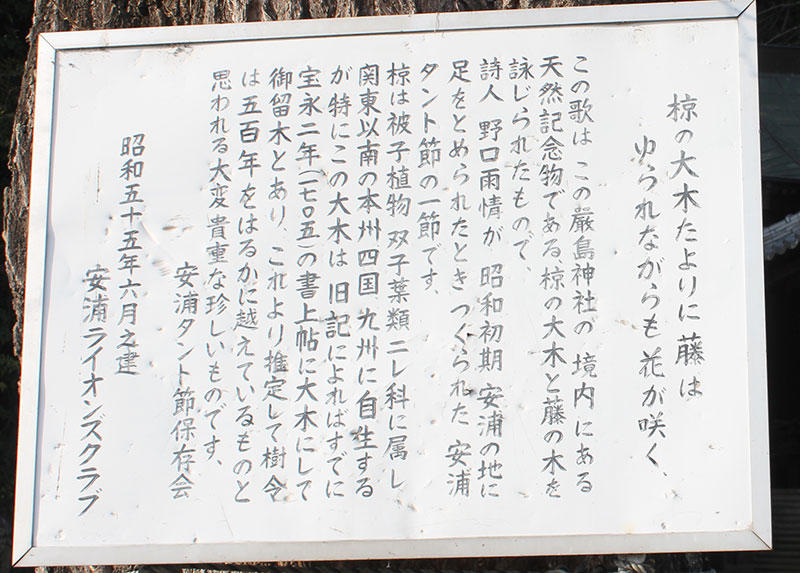 椋の大木たよりに藤は
ゆられながらも花が咲く、
この歌は この厳島神社の境内にある
天然記念物である椋の大木と藤の木を
詠じられたもので、
詩人 野口雨情が 昭和初期 安浦の地に
足をとめられたとき つくられた 安浦
タント節の一節です、
椋は被子植物 双子葉類 ニレ科に属し
関東以南の本州四国九州に自生する
が 特にこの大木は 旧記によればすでに
宝永二年(一七〇五)の書上帖に大木にして
御留木とあり、これより推定して樹令
は五百年をはるかに越えているものと
思われる大変貴重な珍しいものです、
安浦タント節保存会
昭和五十五年六月之建
安浦ライオンズクラブ